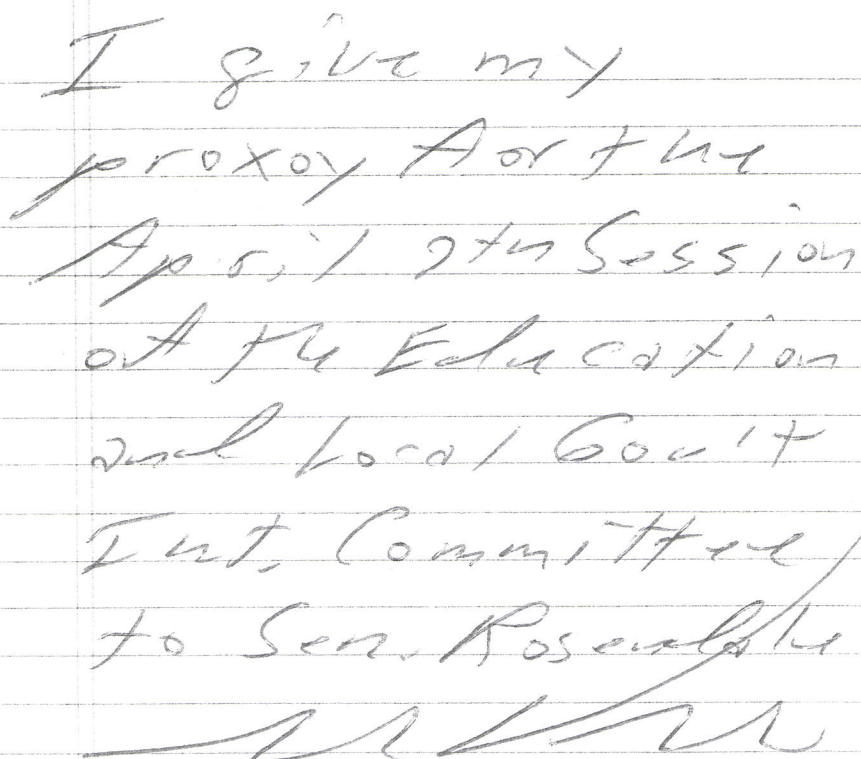 I give my
proxoy for the
April 7th Session
of the Education
and Local Gov't
Int. Committee
to Sen. Rosendale